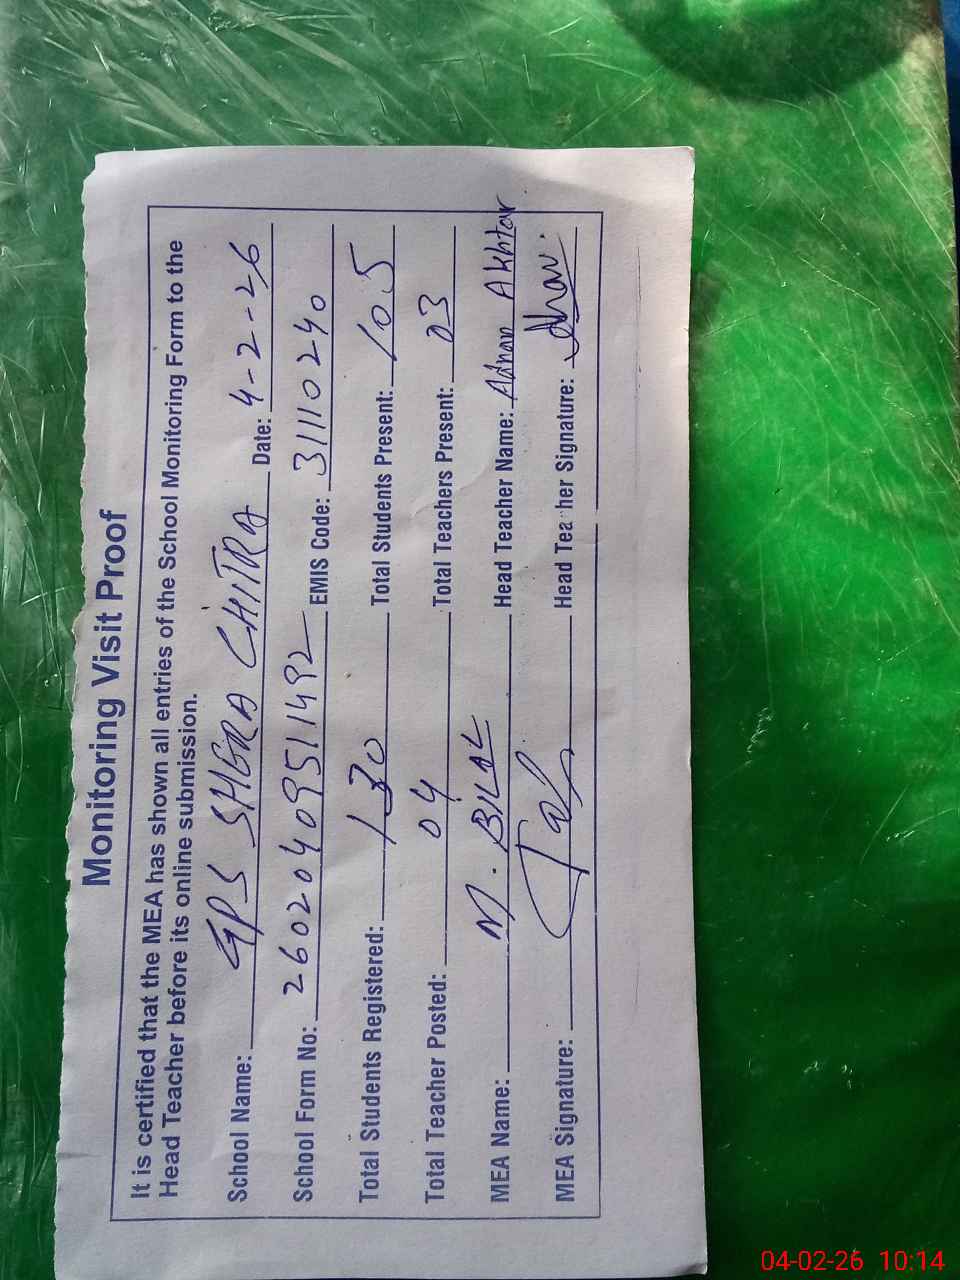 Monitoring Visit Proof
It is certified that the MEA has shown all entries of the School Monitoring Form to the
Head Teacher before its online submission.
School Name: GPS SHGRA CHITRA Date: 4-2-26
School Form No: 26020409951492 EMIS Code: 31110240
Total Students Registered: 130 Total Students Present: 105
Total Teacher Posted: 04 Total Teachers Present: 03
MEA Name: M. BILAL Head Teacher Name: Adnan Akhtar
MEA Signature: Head Teacher Signature:
04-02-26 10:14